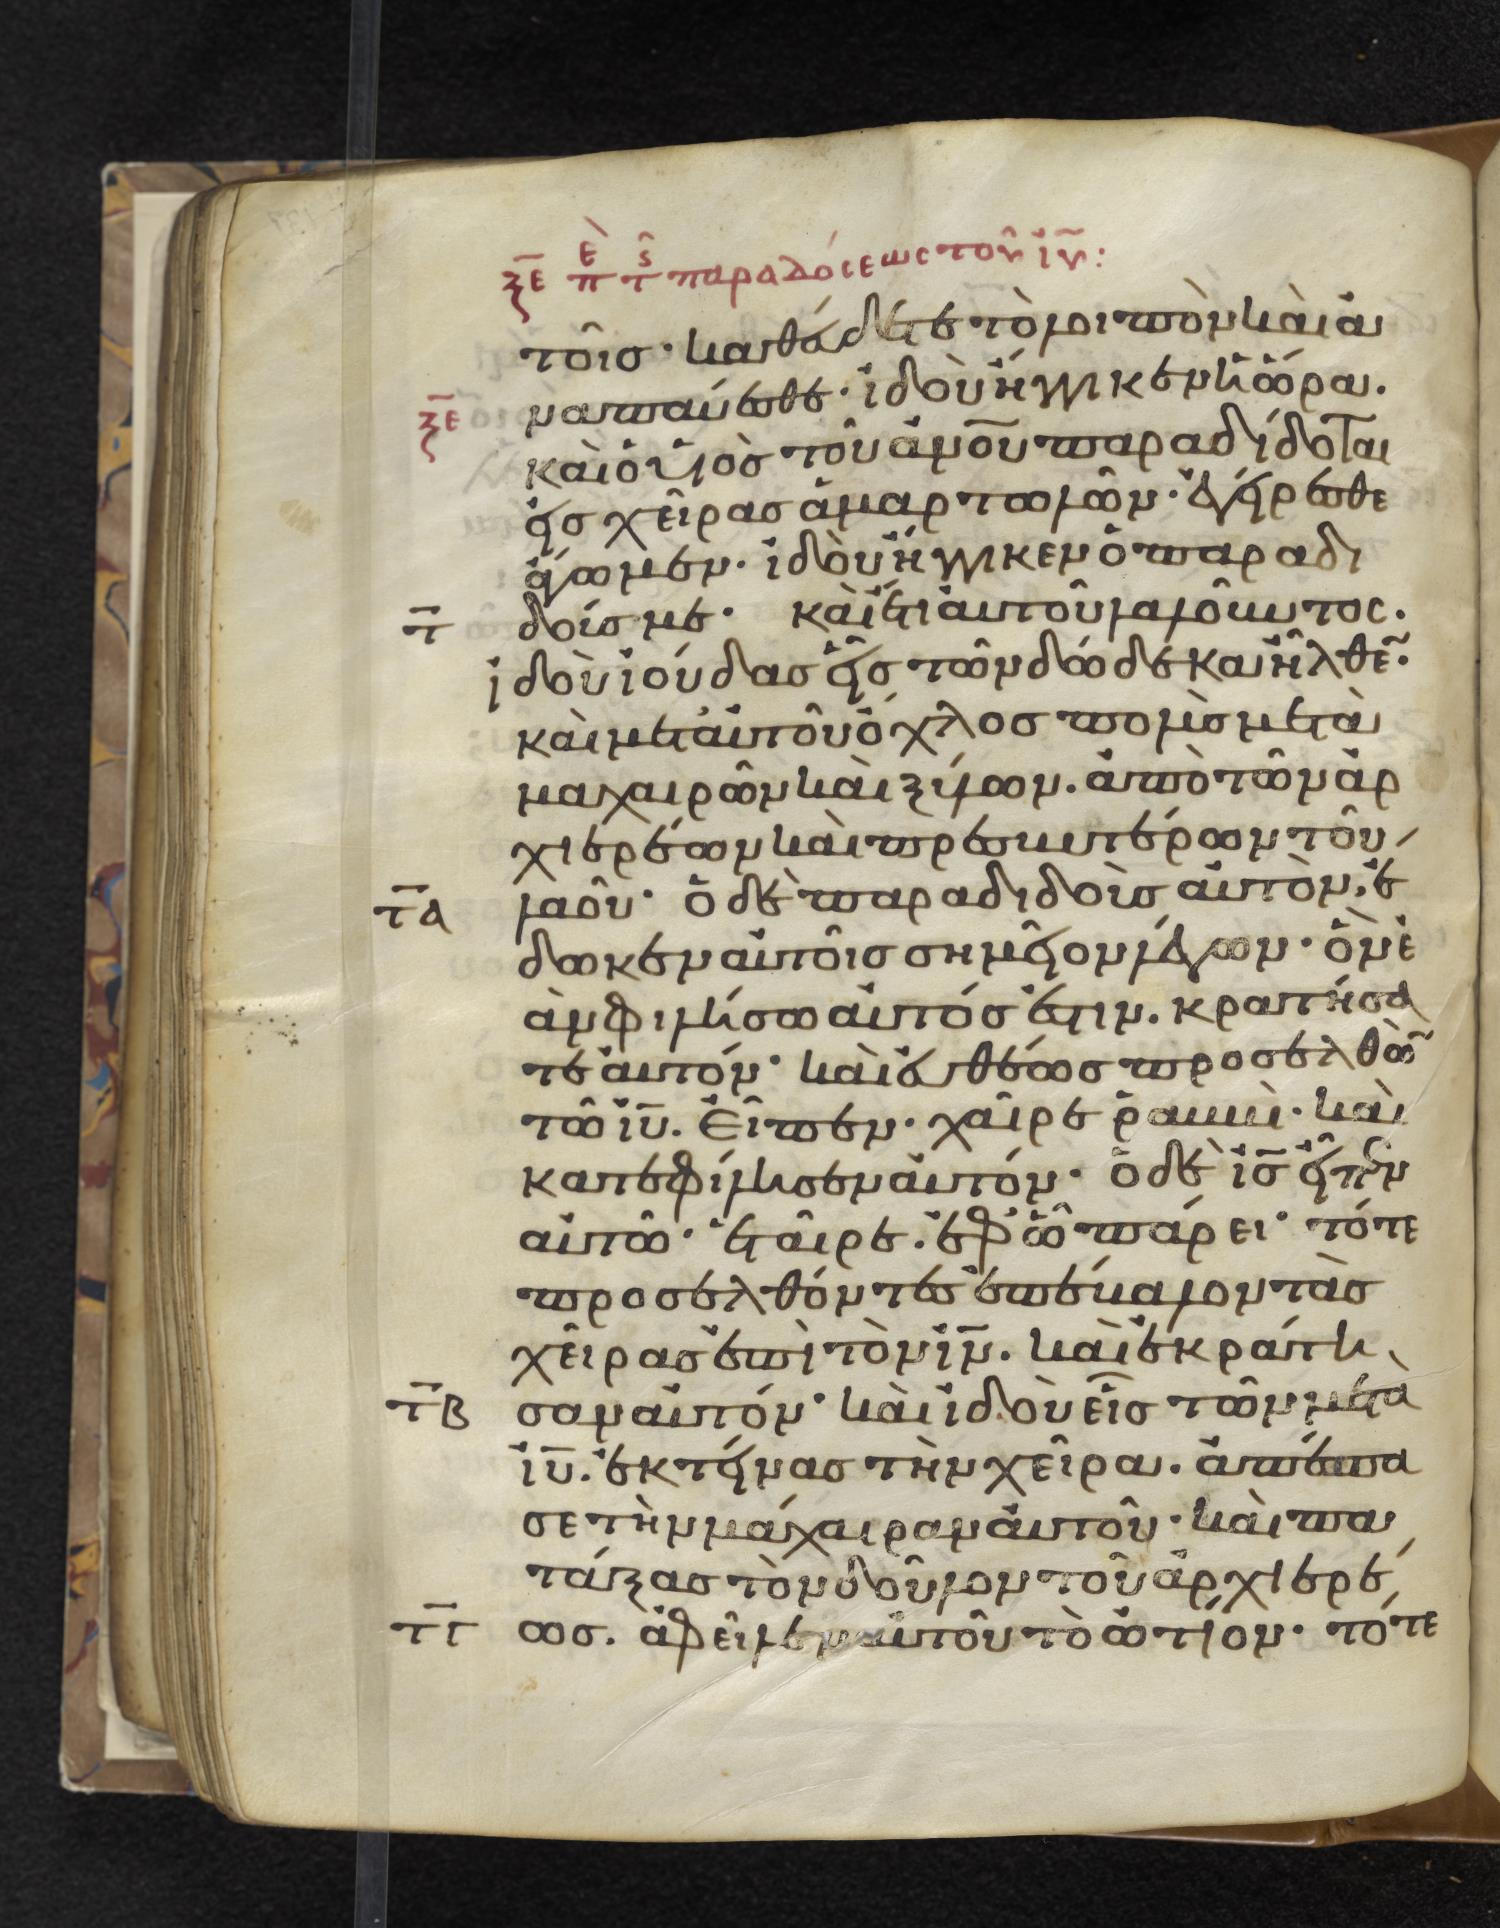 ξ̅ε̅ πὲ τ̅ς̑ παραδόσεως τοῦ ἰ̅υ̅:
τοῖσ· καθεύδετε τὸ λοιπὸν καὶ ἀ
ξ̅ε̅ ναπαύεσθε· ἰδοὺ ἤγγικεν ἡ ὥρα.
καὶ ὁ υἱὸσ τοῦ ἀν̅ο̅υ παραδίδοται
εἰσ χεῖρασ ἁμαρτωλῶν· ἐγείρεσθε
ἄγωμεν· ἰδοὺ ἤγγικεν ὁ παραδι
τ̅ δούσ με· καὶ ἔτι αὐτοῦ λαλοῦντος.
ἰδοὺ ἰούδασ εἷσ τῶν δώδεκα ἦλθε̅·
καὶ μετ' αὐτοῦ ὄχλοσ πολὺσ μετὰ
μαχαιρῶν καὶ ξύλων. ἀπὸ τῶν ἀρ
χιερέων καὶ πρεσβυτέρων τοῦ
τ̅α̅ λαοῦ· ὁ δὲ παραδιδοὺσ αὐτὸν. ἔ
δωκεν αὐτοῖσ σημεῖον λέγων· ὃν ἐ
ὰν φιλήσω αὐτόσ ἐστιν. κρατήσα
τε αὐτόν· καὶ εὐθέωσ προσελθὼ̅
τῶ ἰ̅υ̅. εἶπεν· χαῖρε ῥαββὶ· καὶ
κατεφίλησεν αὐτόν· ὁ δὲ ἰ̅σ̅ εἶπεν
αὐτῶ· ἑταῖρε. ἐφ' ᾧ πάρει· τότε
προσελθόντεσ ἐπέβαλον τὰσ
χεῖρασ ἐπὶ τὸν ἰ̅ν̅. καὶ ἐκράτη
τ̅β̅ σαν αὐτόν· καὶ ἰδοὺ εἷσ τῶν μετὰ
ἰ̅υ̅. ἐκτείνασ τὴν χεῖρα. ἀπέσπα
σε τὴν μάχαιραν αὐτοῦ· καὶ πα
τάξασ τὸν δοῦλον τοῦ ἀρχιερέ
τ̅γ̅ ωσ. ἀφεῖλεν αὐτοῦ τὸ ὠτίον· τότε